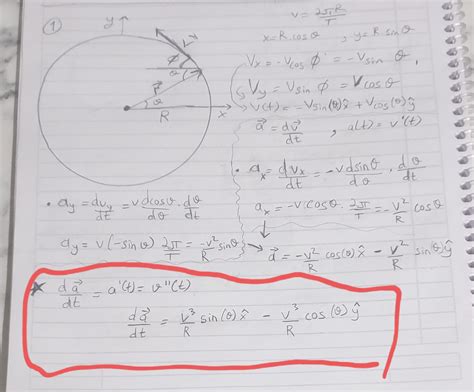 ①
y
v = 2πR/T
x = R cosθ , y = R sinθ
v
ϕ
θ
r
θ
R
x
Vx = -Vcosϕ = -Vsinθ,
Vy = Vsinϕ = Vcosθ
V(t) = -Vsin(θ)x̂ + Vcos(θ)ŷ
a⃗ = dv⃗/dt , a(t) = v'(t)
• ax = dvx/dt = -v dsinθ/dθ · dθ/dt
• ay = dvy/dt = v dcosθ/dθ · dθ/dt
ax = -v cosθ · 2π/T = -v²/R cosθ
ay = v(-sinθ) 2π/T = -v²/R sinθ
→ a⃗ = -v²/R cos(θ)x̂ - v²/R sin(θ)ŷ
* da⃗/dt = a'(t) = v''(t)
da⃗/dt = v³/R sin(θ)x̂ - v³/R cos(θ)ŷ